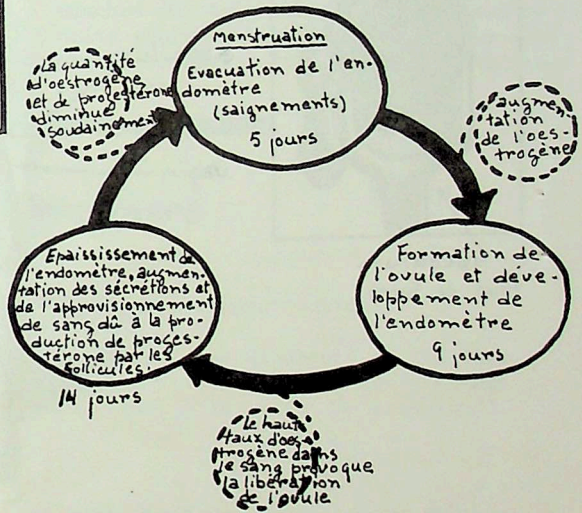 Menstruation
Evacuation de l'en-
domètre
(saignements)
5 jours
augmen-
tation
de l'oes-
trogène
Formation de
l'ovule et déve-
loppement de
l'endomètre
9 jours
le haut
taux d'oes-
trogène dans
le sang provoque
la libération
de l'ovule
Epaississement de
l'endomètre, augmen-
tation des sécrétions et
de l'approvisionnement
de sang dû à la pro-
duction de proges-
térone par les
follicules.
14 jours
La quantité
d'oestrogène
et de progestérone
diminue
soudainement